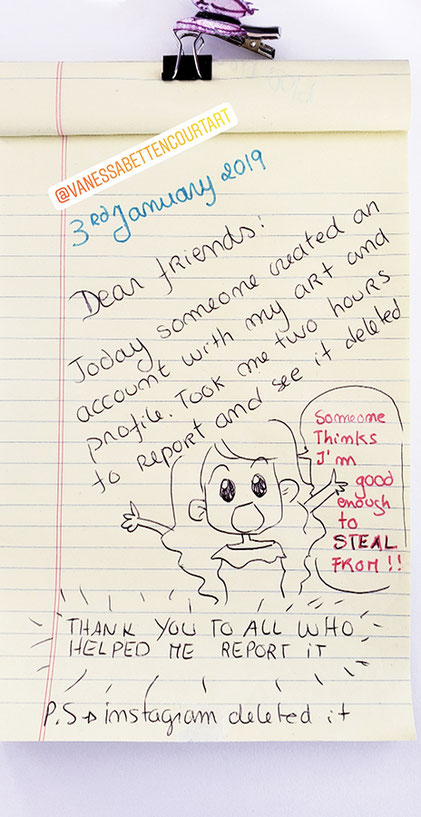 @VANESSABETTENCOURTART
3rd January 2019
Dear friends:
Today someone created an
account with my art and
profile. Took me two hours
to report and see it deleted
Someone
Thinks
I'm
good
enough
to
STEAL
FROM!!
THANK YOU TO ALL WHO
HELPED ME REPORT IT
P.S → instagram deleted it